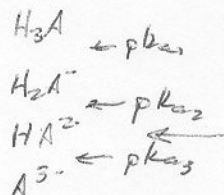 H₃A
← pka₁
H₂A⁻
← pka₂
HA²⁻
←
← pka₃
A³⁻